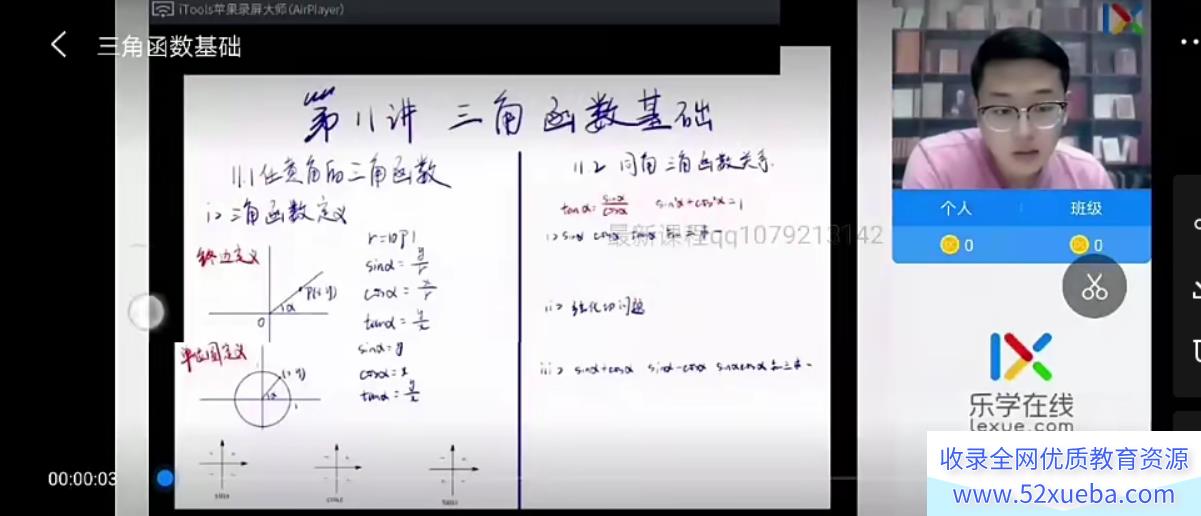 iTools苹果录屏大师(AirPlayer)
三角函数基础
第11讲 三角函数基础
11.1任意角的三角函数
i>三角函数定义
终边定义
r=|OP|
sinα=y/r
cosα=x/r
tanα=y/x
P(x,y)
α
O
单位圆定义
sinα=y
cosα=x
tanα=y/x
(x,y)
α
11.2 同角三角函数关系
tanα=sinα/cosα sin²α+cos²α=1
i>sinα cosα tanα 知一求二
最新课程qq1079213142
ii>弦化切问题
iii> sinα+cosα sinα-cosα sinαcosα 知一求二
个人 班级
0 0
乐学在线
lexue.com
00:00:03
收录全网优质教育资源
www.52xueba.com